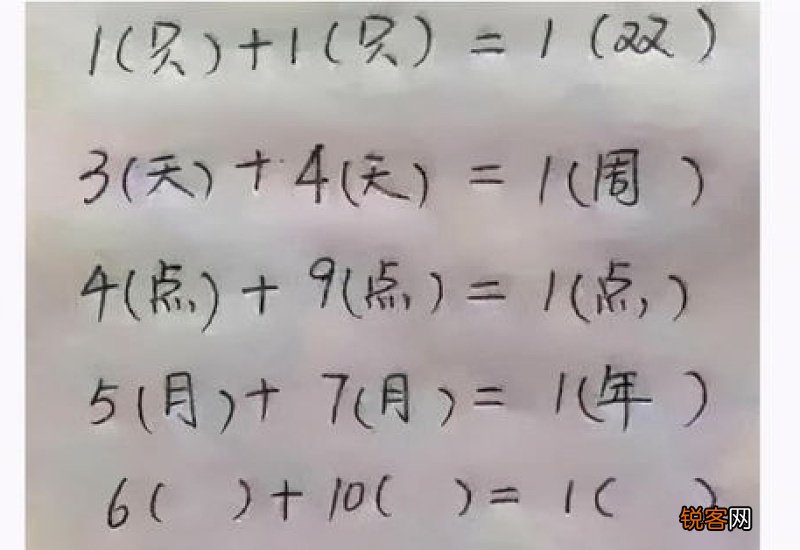 1(只)+1(只)=1(双)
3(天)+4(天)=1(周)
4(点)+9(点)=1(点)
5(月)+7(月)=1(年)
6( )+10( )=1( )
锐客网